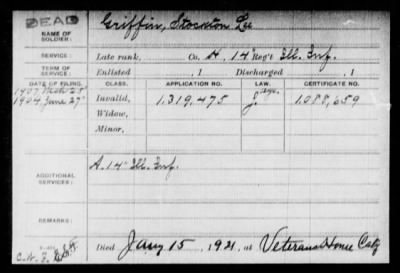 DEAD
NAME OF SOLDIER: Griffin, Stockton Lee
SERVICE: Late rank, Co. H, 14" Reg't Ill. Inf.
TERM OF SERVICE: Enlisted , 1 Discharged , 1
DATE OF FILING. CLASS. APPLICATION NO. LAW. CERTIFICATE NO.
1907 Mch 25" Invalid, 1,319,475 1,088,659
1904 June 27"
Widow,
Minor,
ADDITIONAL SERVICES: A. 14" Ill. Inf.
REMARKS:
Died Jany 15, 1921, at Veterans Home Calif